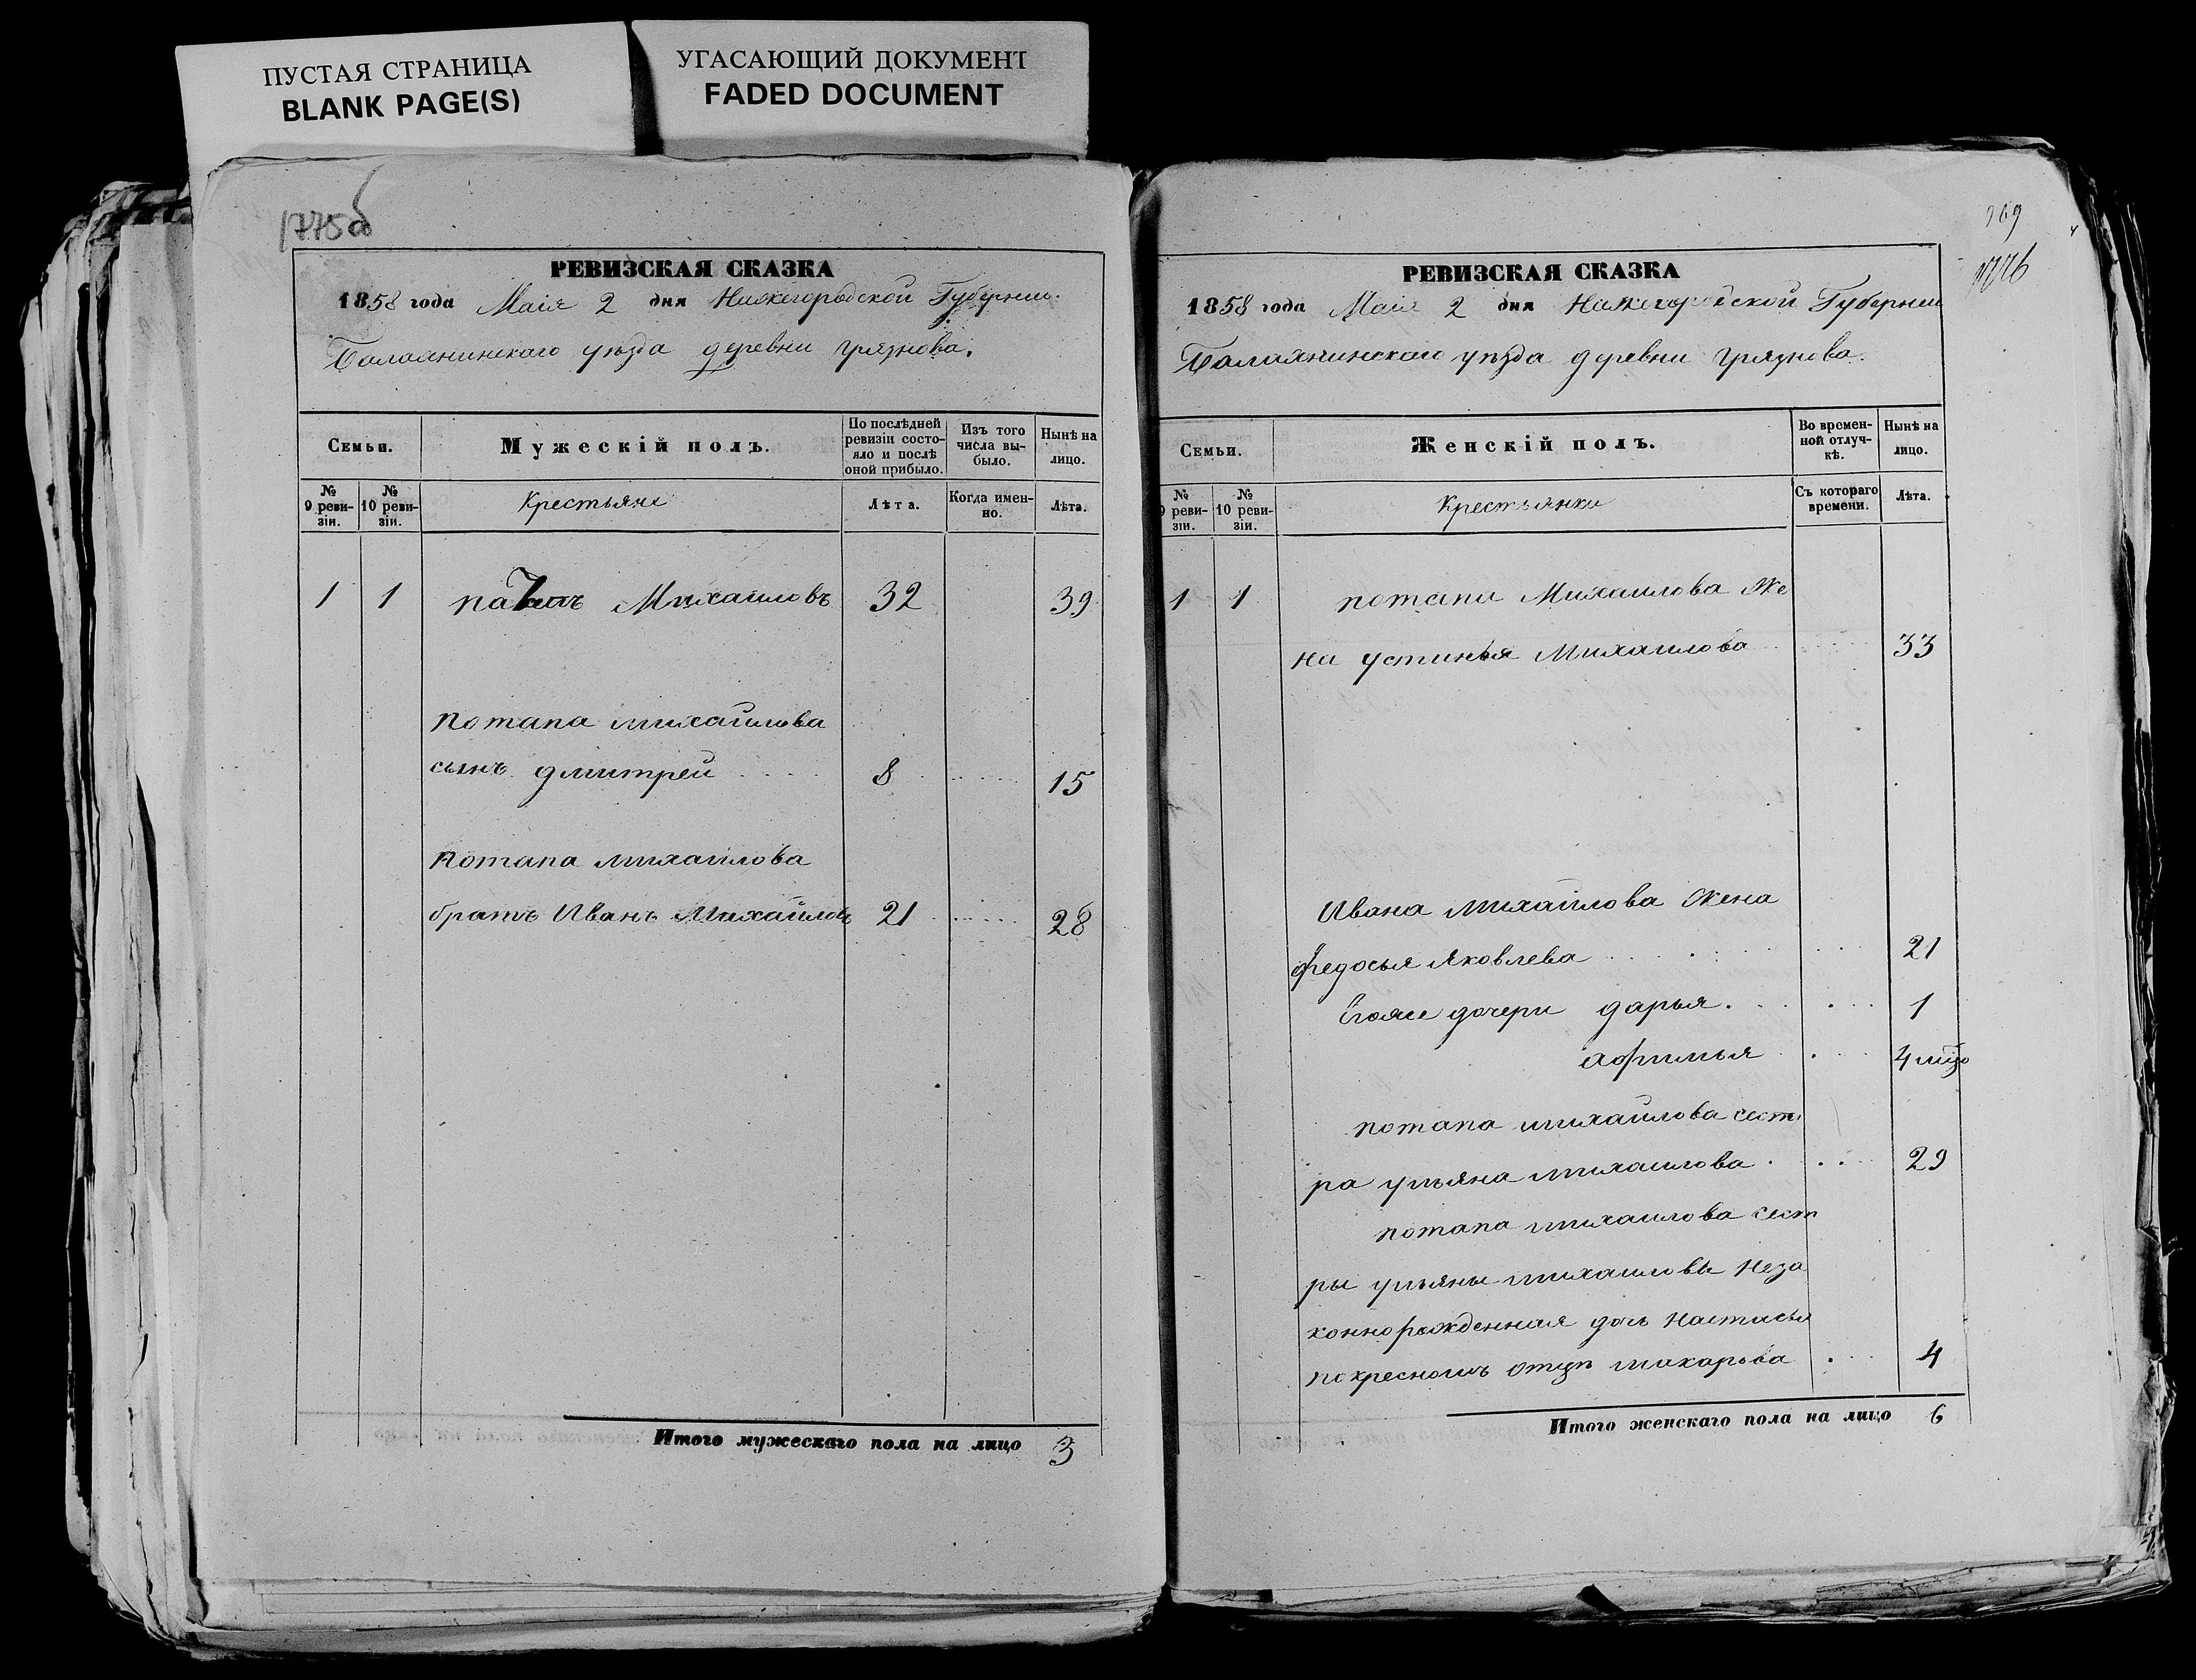 ПУСТАЯ СТРАНИЦА
BLANK PAGE(S)
УГАСАЮЩИЙ ДОКУМЕНТ
FADED DOCUMENT
1775 об
РЕВИЗСКАЯ СКАЗКА
1858 года Маія 2 дня Нижегородской Губерніи
Балахнинскаго уѣзда деревни грязнова.
Семьи.
Мужескій полъ.
По послѣдней ревизіи состояло и послѣ оной прибыло.
Изъ того числа выбыло.
Нынѣ на лицо.
№ 9 ревизіи.
№ 10 ревизіи.
Крестьяне
Лѣта.
Когда именно.
Лѣта.
1 1 Михаиловъ 32 39
потапа михайлова
сынъ дмитрей 8 15
потапа михаилова
братъ Иванъ Михайловъ 21 28
Итого мужескаго пола на лицо 3
969
1776
РЕВИЗСКАЯ СКАЗКА
1858 года Маія 2 дня Нижегородской Губерніи
Балахнинскаго уѣзда деревни грязнова.
Семьи.
Женскій полъ.
Во временной отлучкѣ.
Нынѣ на лицо.
№ 9 ревизіи.
№ 10 ревизіи.
Крестьянки
Съ котораго времени.
Лѣта.
1 1 потапа Михаилова Же
на устинья Михаилова 33
Ивана михайлова жена
федосья яковлева 21
Егоже дочери дарья. 1
афимья 4
потапа михайлова сест
ра ульяна михаилова. 29
потапа михаилова сест
ры ульяны михаиловы неза
коннорожденная дочь настасья
покресномъ отцѣ макарова 4
Итого женскаго пола на лицо 6